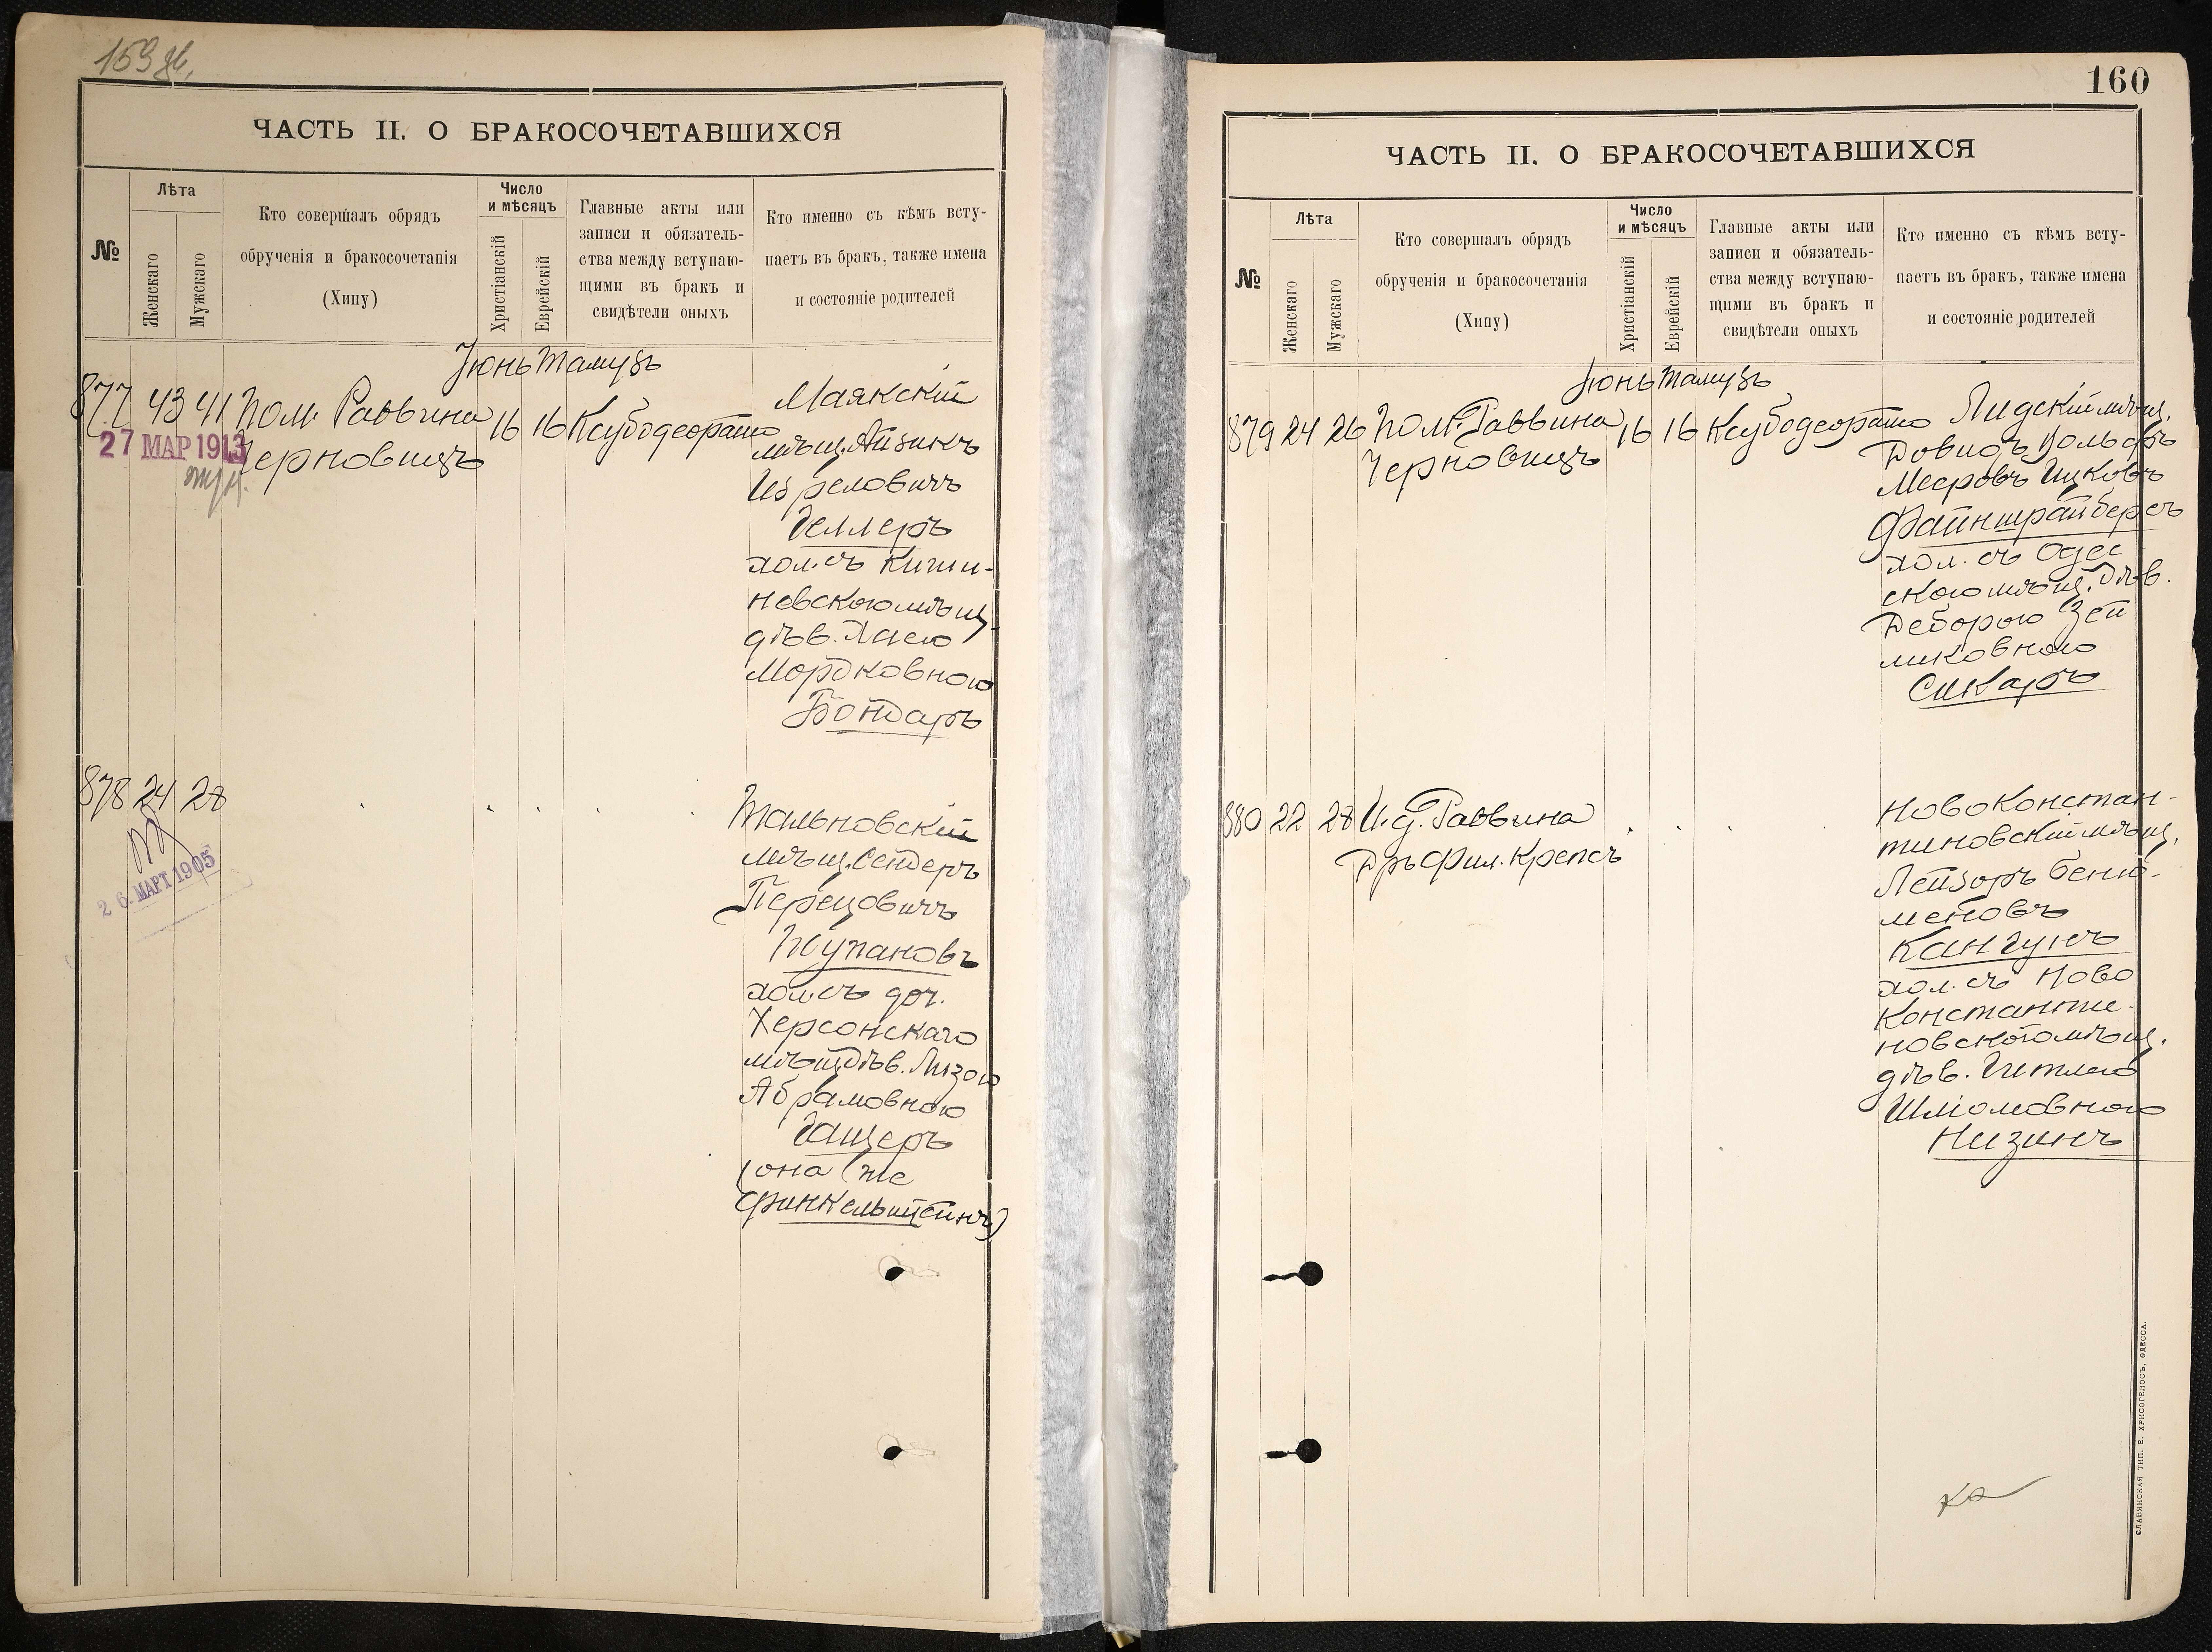 159 об.
ЧАСТЬ II. О БРАКОСОЧЕТАВШИХСЯ
№
Лѣта
Женскаго
Мужскаго
Кто совершалъ обрядъ
обрученія и бракосочетанія
(Хипу)
Число
и мѣсяцъ
Христіанскій
Еврейскій
Главные акты или
записи и обязатель-
ства между вступаю-
щими въ бракъ и
свидѣтели оныхъ
Кто именно съ кѣмъ всту-
паетъ въ бракъ, также имена
и состояніе родителей
Іюнь Тамузъ
877 43 41 Пом. Раввина 16 16 Ксубодеорато
Черновицъ
27 МАР 1913
Маякскій
мѣщ. Айзикъ
Изрелович
Геллеръ
хол. съ Киши-
невскою мѣщ.
дѣв. Хаею
Мордковною
Бондаръ
878 24 28
26 МАРТ 1905
Тальновскій
мѣщ. Сендеръ
Перецовичъ
Жупановъ
хол. съ доч.
Херсонскаго
мѣщ. дѣв. Лизою
Абрамовною
Гащеръ
(она же
Финкельштейнъ)
160
ЧАСТЬ II. О БРАКОСОЧЕТАВШИХСЯ
№
Лѣта
Женскаго
Мужскаго
Кто совершалъ обрядъ
обрученія и бракосочетанія
(Хипу)
Число
и мѣсяцъ
Христіанскій
Еврейскій
Главные акты или
записи и обязатель-
ства между вступаю-
щими въ бракъ и
свидѣтели оныхъ
Кто именно съ кѣмъ всту-
паетъ въ бракъ, также имена
и состояніе родителей
Іюнь Тамузъ
879 24 26 Пом. Раввина 16 16 Ксубодеорато
Черновицъ
Лидскій мѣщ.
Довидъ Вольфъ
Мееровъ Ицковъ
Файнштайберъ
хол. съ Одес
скою мѣщ. дѣв.
Деборою Зей
ликовною
Сикаръ
880 22 28 И. д. Раввина
Дръ Фил. Крепсъ
Новоконстан-
тиновскій мѣщ.
Лейзоръ Беню-
меновъ
Кангунъ
хол. съ Ново
Константи-
новскою мѣщ.
дѣв. Гитлею
Шліомовною
Низинъ
СЛАВЯНСКАЯ ТИП. Е. ХРИСОГЕЛОСЪ, ОДЕССА.